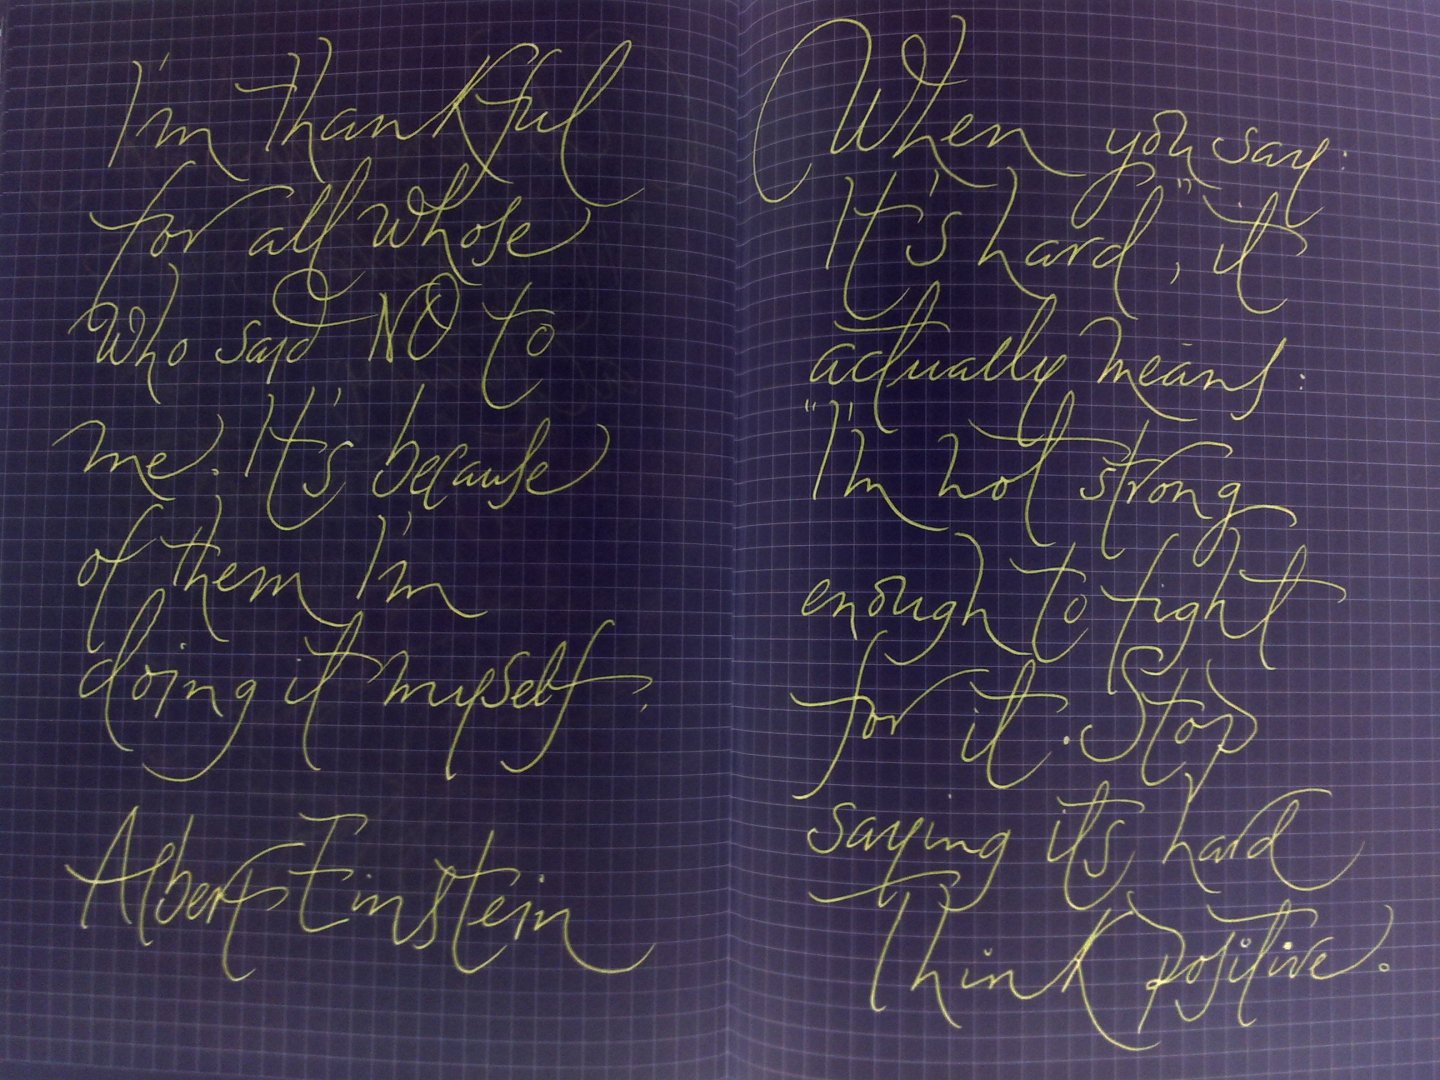 I'm thankful
for all whose
who said NO to
me. It's because
of them I'm
doing it myself.
Albert Einstein
When you say:
It's hard", it
actually means:
"I'm not strong
enough to fight
for it. Stop
saying its hard
Think positive.